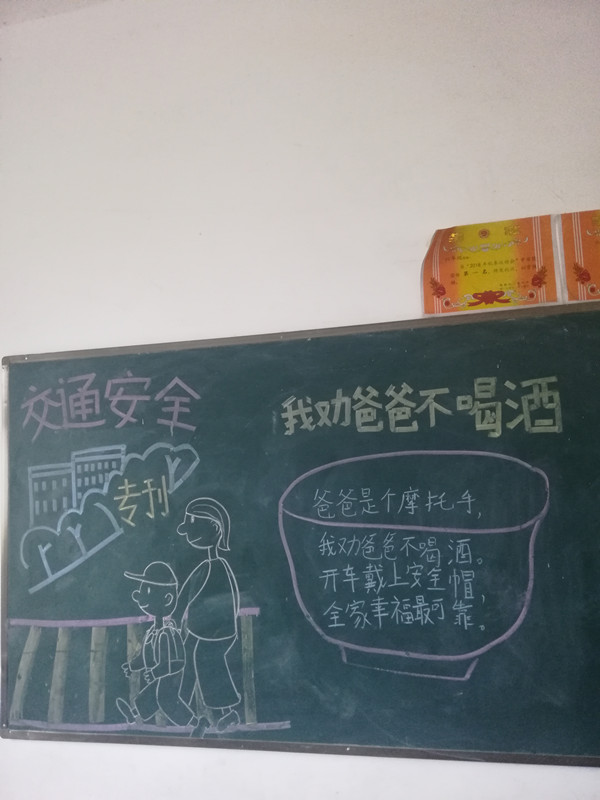 交通安全
专刊
我劝爸爸不喝酒
爸爸是个摩托手,
我劝爸爸不喝酒。
开车戴上安全帽,
全家幸福最可靠。
第一名